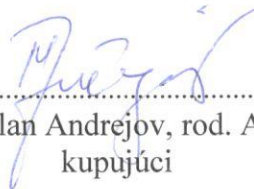 lan Andrejov, rod. A
kupujúci